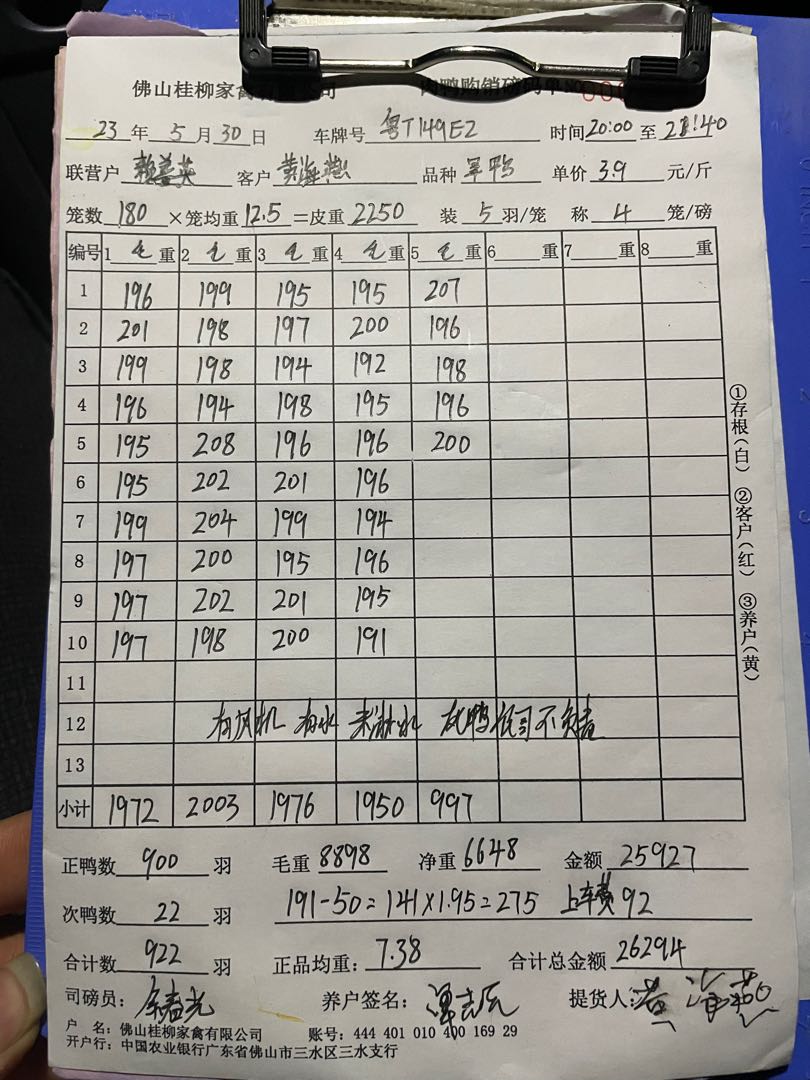 佛山桂柳家禽有限公司 肉鸭购销磅码单
23年5月30日 车牌号 粤T149E2 时间20:00至21:40
联营户 客户 黄海燕 品种 单价 3.9 元/斤
笼数 180 ×笼均重 12.5 =皮重 2250 装 5 羽/笼 称 4 笼/磅
编号 1 毛重 2 毛重 3 毛重 4 毛重 5 毛重 6 重 7 重 8 重
1 196 199 195 195 207
2 201 198 197 200 196
3 199 198 194 192 198
4 196 194 198 195 196
5 195 208 196 196 200
6 195 202 201 196
7 199 204 199 194
8 197 200 195 196
9 197 202 201 195
10 197 198 200 191
11
12 有风机 有水 死鸭 不负责
13
小计 1972 2003 1976 1950 997
正鸭数 900 羽 毛重 8898 净重 6648 金额 25927
次鸭数 22 羽 191-50=141×1.95=275 上车费92
合计数 922 羽 正品均重: 7.38 合计总金额 26294
司磅员: 养户签名: 提货人: 黄海燕
户 名: 佛山桂柳家禽有限公司 账号: 444 401 010 400 169 29
开户行: 中国农业银行广东省佛山市三水区三水支行
①存根(白) ②客户(红) ③养户(黄)